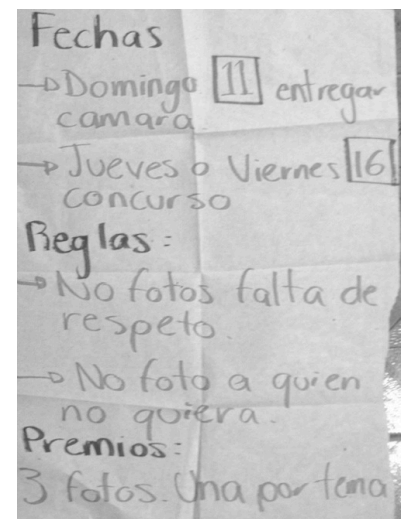 Fechas
→Domingo 11 entregar
camara.
→Jueves o Viernes 16
concurso
Reglas:
→No fotos falta de
respeto.
→No foto a quien
no quiera.
Premios:
3 fotos. Una por tema